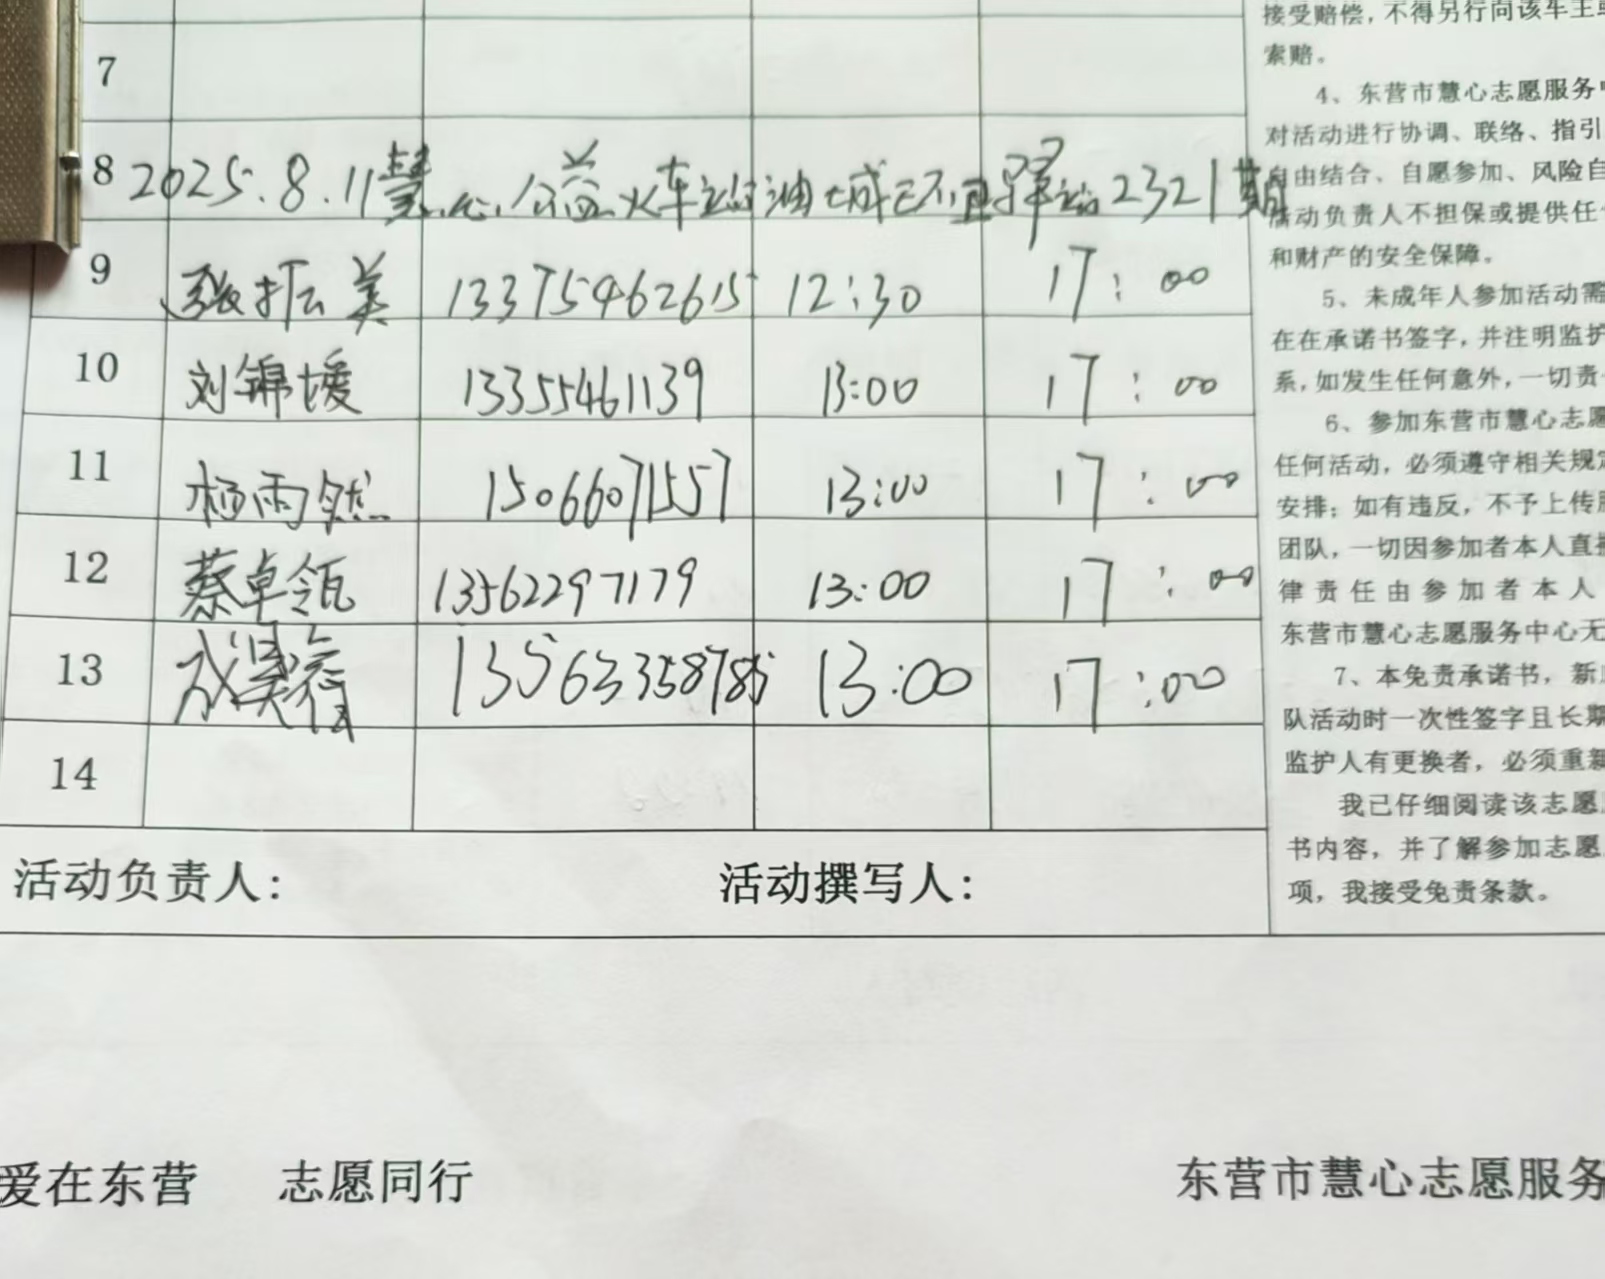 7
8 2025.8.11慧心公益火车站油城 驿站2321期
9 张振英 13375462615 12:30 17:00
10 刘锦媛 13355461139 13:00 17:00
11 杨雨然 15066071557 13:00 17:00
12 蔡卓瓴 13562297179 13:00 17:00
13 成昊 13563358785 13:00 17:00
14
活动负责人: 活动撰写人:
接受赔偿，不得另行向该车主
索赔。
4、东营市慧心志愿服务
对活动进行协调、联络、指引
自由结合、自愿参加、风险自
活动负责人不担保或提供任
和财产的安全保障。
5、未成年人参加活动需
在在承诺书签字，并注明监护
系，如发生任何意外，一切责
6、参加东营市慧心志愿
任何活动，必须遵守相关规定
安排；如有违反，不予上传
团队，一切因参加者本人直接
律责任由参加者本人
东营市慧心志愿服务中心无
7、本免责承诺书，新
队活动时一次性签字且长期
监护人有更换者，必须重新
我已仔细阅读该志愿
书内容，并了解参加志愿
项，我接受免责条款。
爱在东营 志愿同行 东营市慧心志愿服务